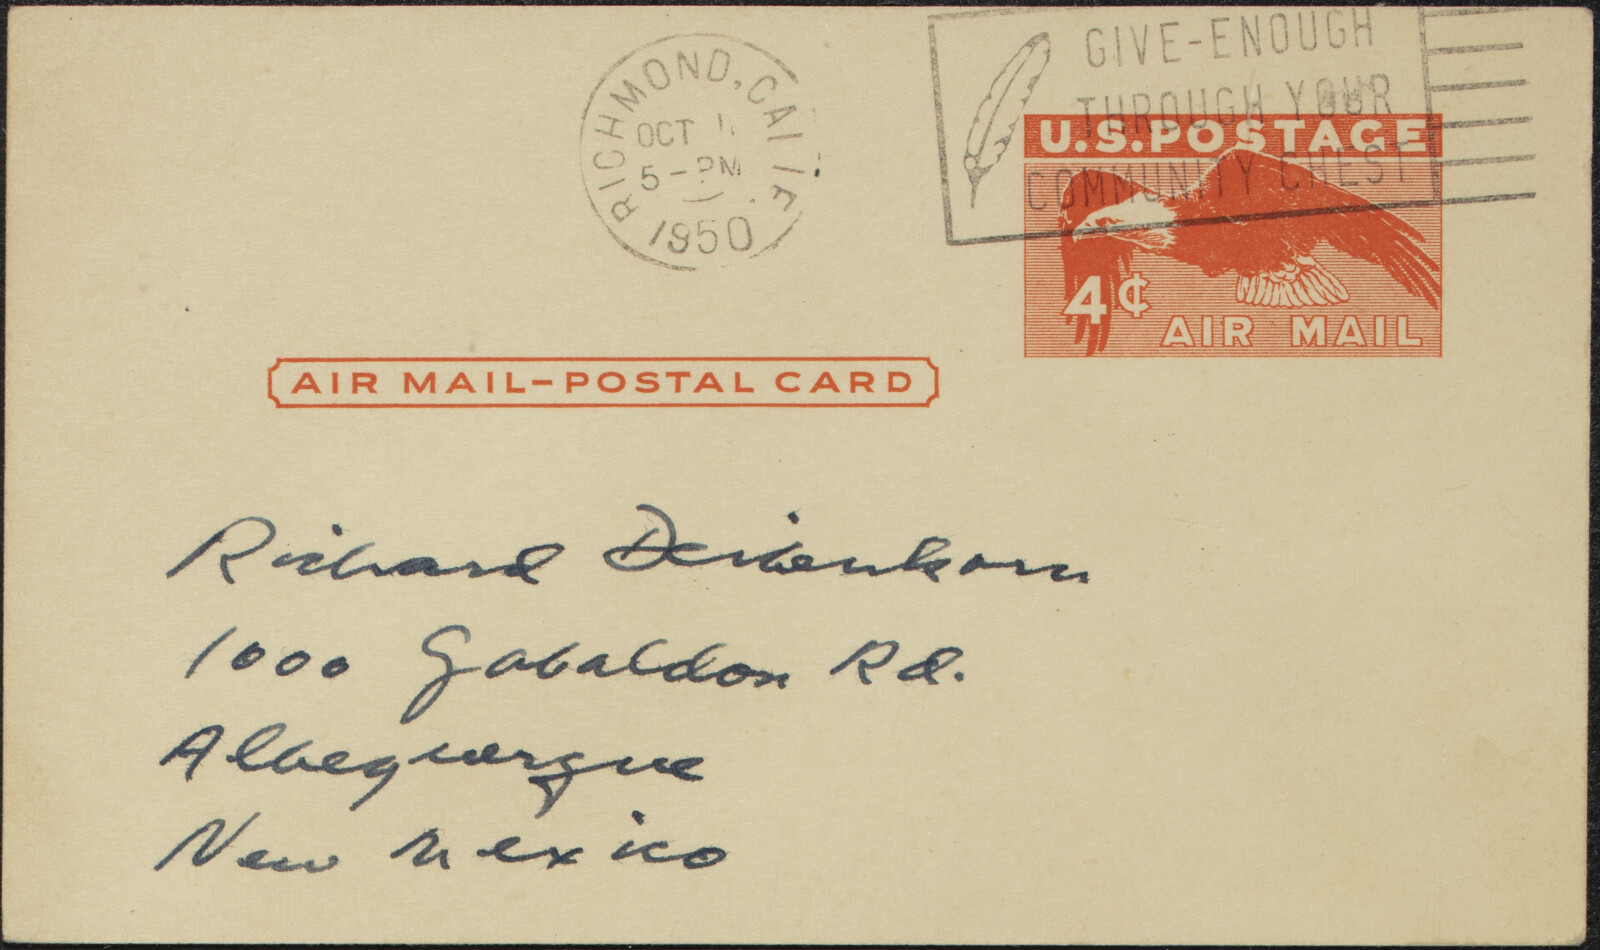 RICHMOND, CALIF
OCT 11
5-PM
1950
GIVE-ENOUGH
THROUGH YOUR
COMMUNITY CHEST
U.S. POSTAGE
4¢
AIR MAIL
AIR MAIL-POSTAL CARD
Richard Deibenkorn
1000 Gabaldon Rd.
Albequerque
New Mexico